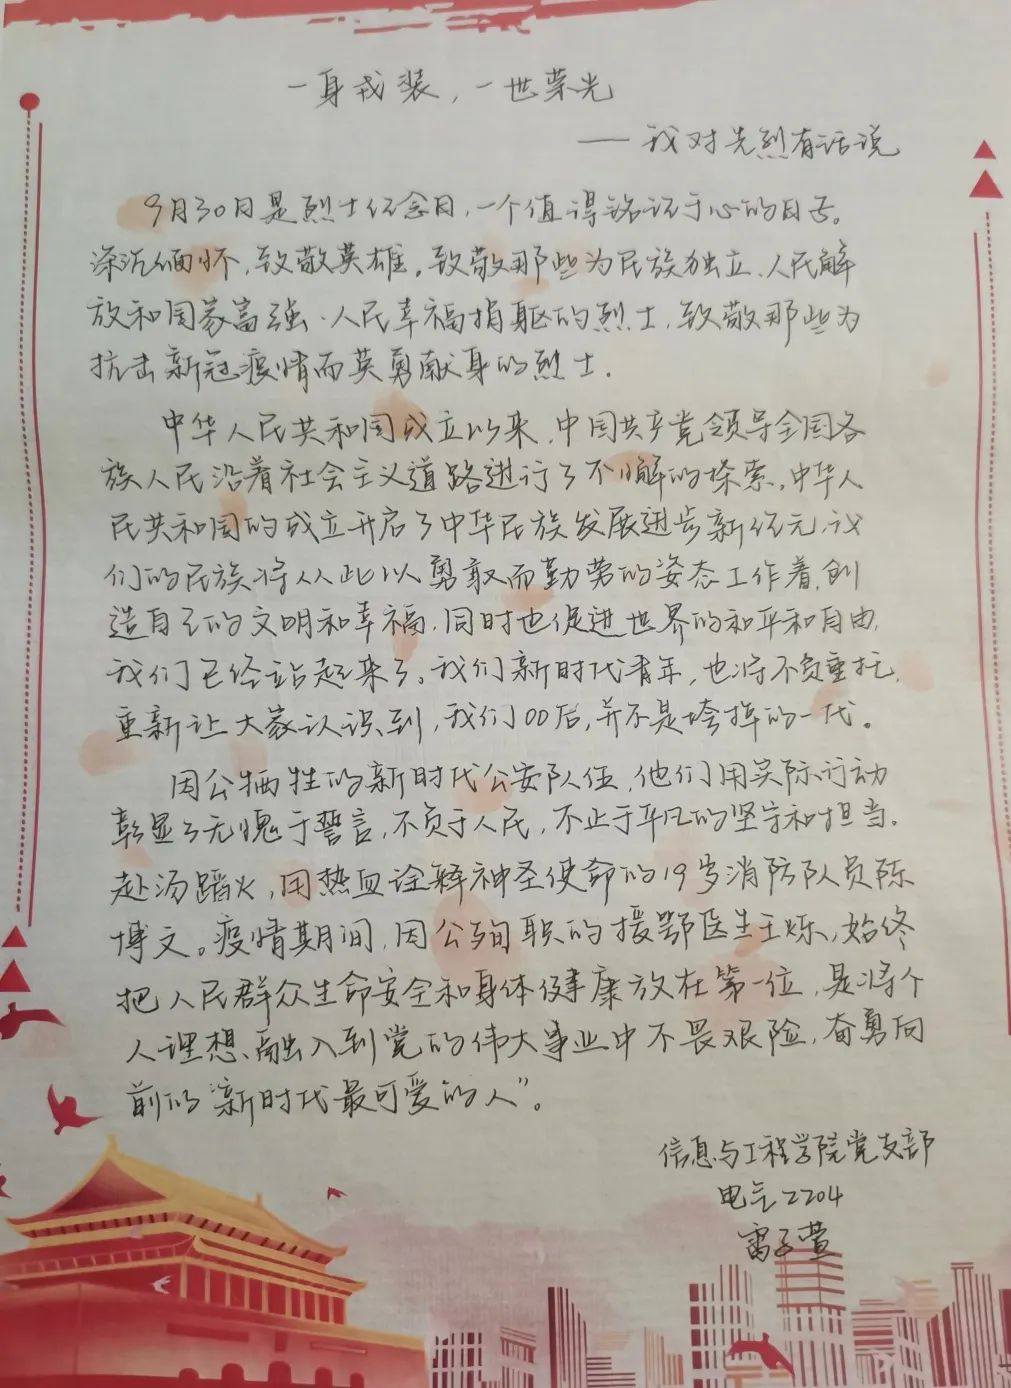 一身戎装，一世荣光
——我对先烈有话说
9月30日是烈士纪念日，一个值得铭记于心的日子。
深沉缅怀，致敬英雄。致敬那些为民族独立、人民解
放和国家富强、人民幸福捐躯的烈士，致敬那些为
抗击新冠疫情而英勇献身的烈士.
中华人民共和国成立以来，中国共产党领导全国各
族人民沿着社会主义道路进行了不懈的探索。中华人
民共和国的成立开启了中华民族发展进步新纪元，我
们的民族将从此以勇敢而勤劳的姿态工作着，创
造自己的文明和幸福，同时也促进世界的和平和自由，
我们已经站起来了。我们新时代青年，也将不负重托，
重新让大家认识到，我们00后，并不是垮掉的一代。
因公牺牲的新时代公安队伍，他们用实际行动
彰显了无愧于誓言，不负于人民，不止于平凡的坚守和担当。
赴汤蹈火，用热血诠释神圣使命的19岁消防队员陈
博文。疫情期间，因公殉职的援鄂医生王烁，始终
把人民群众生命安全和身体健康放在第一位，是将个
人理想、融入到党的伟大事业中不畏艰险，奋勇向
前的“新时代最可爱的人”。
信息与工程学院党支部
电气2204
雷子萱